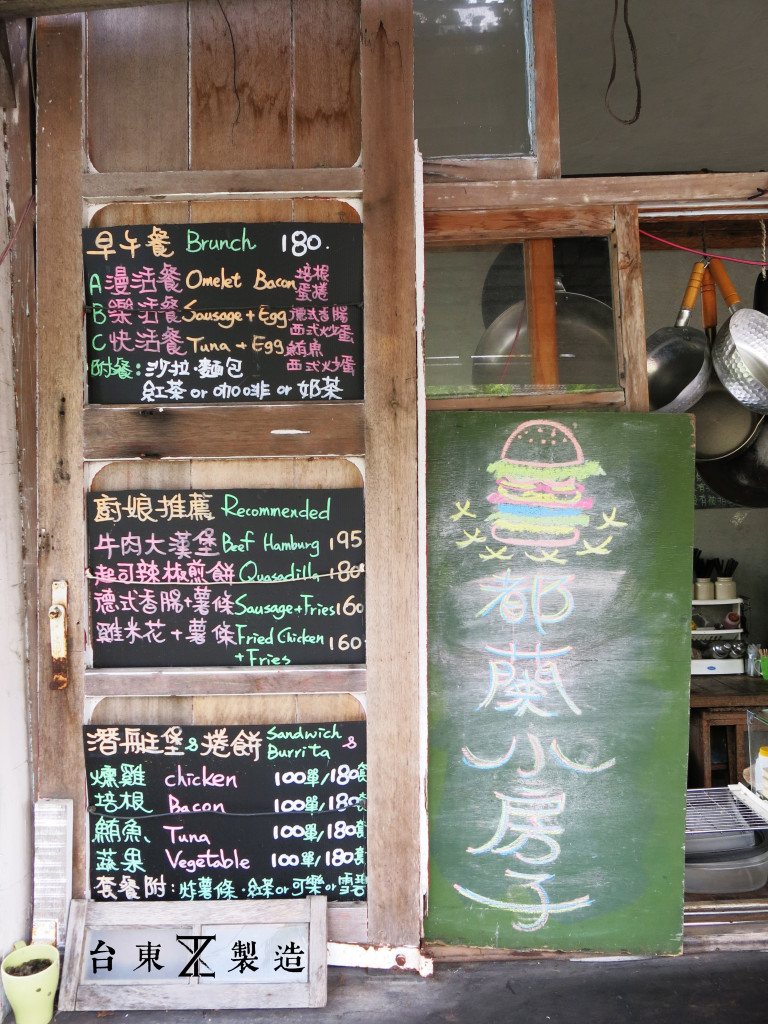 早午餐 Brunch 180.
A 漫活餐 Omelet Bacon 培根蛋捲
B 樂活餐 Sausage + Egg 德式香腸 西式炒蛋
C 快活餐 Tuna + Egg 鮪魚 西式炒蛋
附餐：沙拉・麵包
紅茶 or 咖啡 or 奶茶
廚娘推薦 Recommended
牛肉大漢堡 Beef Hamburg 195
起司辣椒煎餅 Quasadilla 180
德式香腸+薯條 Sausage+Fries 160
雞米花+薯條 Fried Chicken + Fries 160
潛艇堡&捲餅 Sandwich & Burrita
燻雞 chicken 100單/180套
培根 Bacon 100單/180套
鮪魚 Tuna 100單/180套
蔬果 Vegetable 100單/180套
套餐附：炸薯條・紅茶or可樂or雪碧
台東製造
都蘭小房子